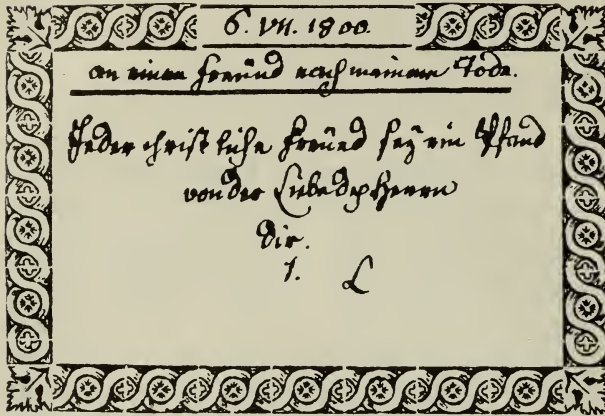 6. VII. 1800.
an einen Freünd nach meinem Tode.
Jeder christliche Freünd seÿ ein Pfand
von der Liebe deß Herrn
dir.
1. L